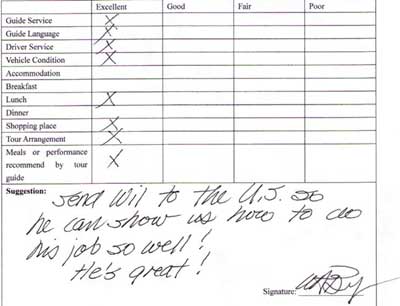 Excellent Good Fair Poor
Guide Service X
Guide Language X
Driver Service X
Vehicle Condition X
Accommodation
Breakfast
Lunch X
Dinner
Shopping place X
Tour Arrangement X
Meals or performance
recommend by tour X
guide
Suggestion:
Send Wil to the U.S. so
he can show us how to do
his job so well!
He's great!
Signature: